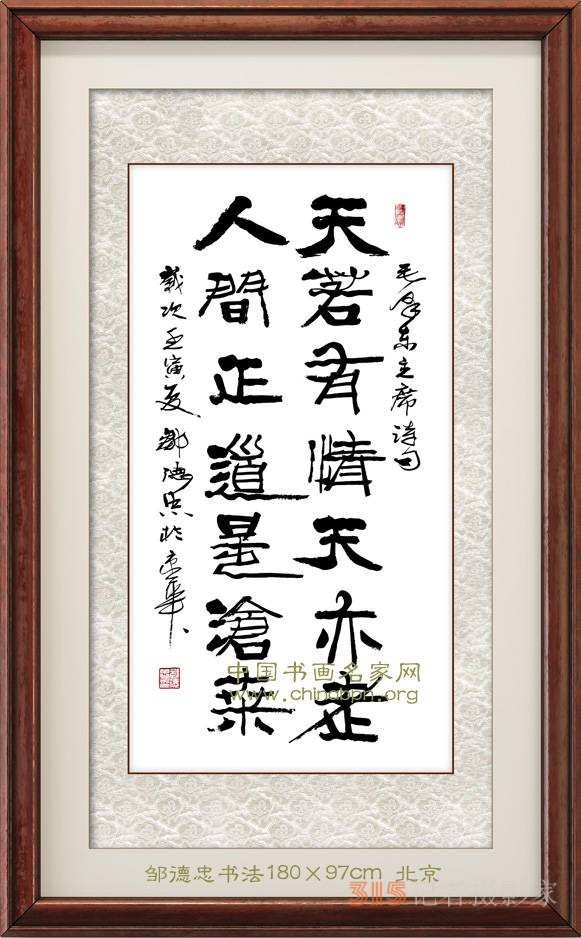 毛泽东主席诗句
天若有情天亦老
人間正道是滄桑
歲次壬寅夏鄒德忠於京華
中国书画名家网
www.chinabpn.org
邹德忠书法180×97cm 北京
315记者摄影家